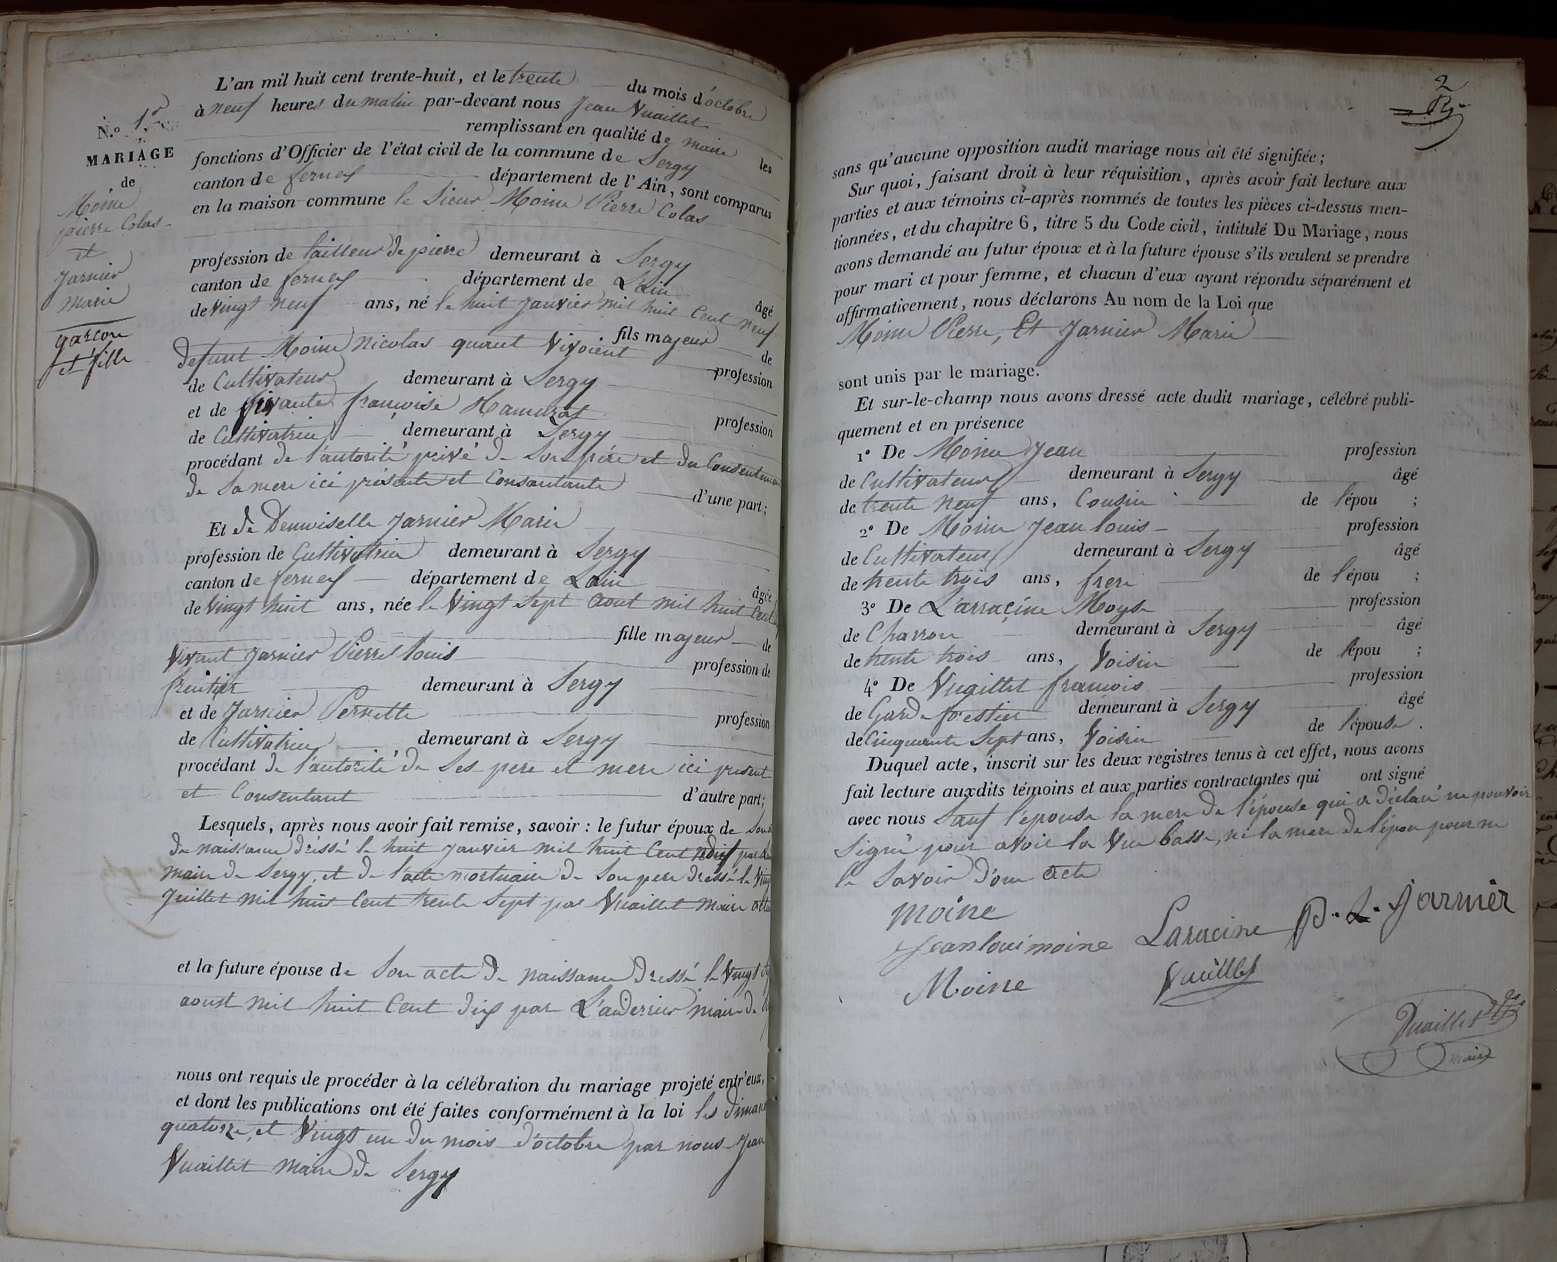 N.º 1er
MARIAGE
de
Moine
pierre Colas
et
Jarnier
Marie
garçon
et fille
L'an mil huit cent trente-huit, et le trente du mois d'octobre
à neuf heures du matin par-devant nous Jean Vuaillet
remplissant en qualité de maire les
fonctions d'Officier de l'état civil de la commune de Sergy
canton de ferney département de l'Ain, sont comparus
en la maison commune le Sieur Moine Pierre Colas
profession de tailleur de pierre demeurant à Sergy
canton de ferney département de Lain âgé
de vingt neuf ans, né le huit janvier mil huit Cent neuf
fils majeur de
defunt Moine Nicolas quant vivoient profession
de Cultivateur demeurant à Sergy
et de vivante françoise profession
de Cultivatrice demeurant à Sergy
procédant de l'autorité privé de Son père et du Consentement
de Sa mere ici présente et Consantante d'une part;
Et de Demoiselle Jarnier Marie
profession de Cultivatrice demeurant à Sergy
canton de ferney département de Lain âgée
de vingt huit ans, née le vingt Sept aout mil huit Cent
fille majeur de
vivant Jarnier Pierre louis profession de
demeurant à Sergy
et de Jarnier Pernette profession
de Cultivatrice demeurant à Sergy
procédant de l'autorité de Ses pere et mere ici present
et Consentant d'autre part;
Lesquels, après nous avoir fait remise, savoir : le futur époux de Son
de naissance dressé le huit janvier mil huit Cent neuf par le
maire de Sergy, et de l'acte mortuaire de Son pere dressé le vingt
juillet mil huit Cent trente Sept par Vuaillet maire
et la future épouse de Son acte de naissance dressé le vingt
aoust mil huit Cent dix par maire de
nous ont requis de procéder à la célébration du mariage projeté entr'eux,
et dont les publications ont été faites conformément à la loi les
quatorze, et vingt un du mois d'octobre par nous Jean
Vuaillet maire de Sergy
2
sans qu'aucune opposition audit mariage nous ait été signifiée;
Sur quoi, faisant droit à leur réquisition, après avoir fait lecture aux
parties et aux témoins ci-après nommés de toutes les pièces ci-dessus men-
tionnées, et du chapitre 6, titre 5 du Code civil, intitulé Du Mariage, nous
avons demandé au futur époux et à la future épouse s'ils veulent se prendre
pour mari et pour femme, et chacun d'eux ayant répondu séparément et
affirmativement, nous déclarons Au nom de la Loi que
Moine Pierre, Et Jarnier Marie
sont unis par le mariage.
Et sur-le-champ nous avons dressé acte dudit mariage, célébré publi-
quement et en présence
1º De Moine Jean profession
de Cultivateur demeurant à Sergy âgé
de trente neuf ans, Cousin de l'épou ;
2º De Moine Jean louis profession
de Cultivateur demeurant à Sergy âgé
de trente trois ans, frere de l'épou ;
3º De Larracine Moyse profession
de Charron demeurant à Sergy âgé
de trente trois ans, Voisin de lépou ;
4º De Vugillet francois profession
de Garde forestier demeurant à Sergy âgé
de Cinquante Sept ans, Voisin de l'épouse .
Duquel acte, inscrit sur les deux registres tenus à cet effet, nous avons
fait lecture auxdits témoins et aux parties contractantes qui ont signé
avec nous Sauf l'épouse la mere de l'épouse qui a déclaré ne pouvoir
Signé pour avoir la vue basse, ni la mere de l'épou pour ne
le Savoir d'on acte
moine
Jean loui moine
Moine
Laracine
P. L. Jarnier
Vuaillet
maire